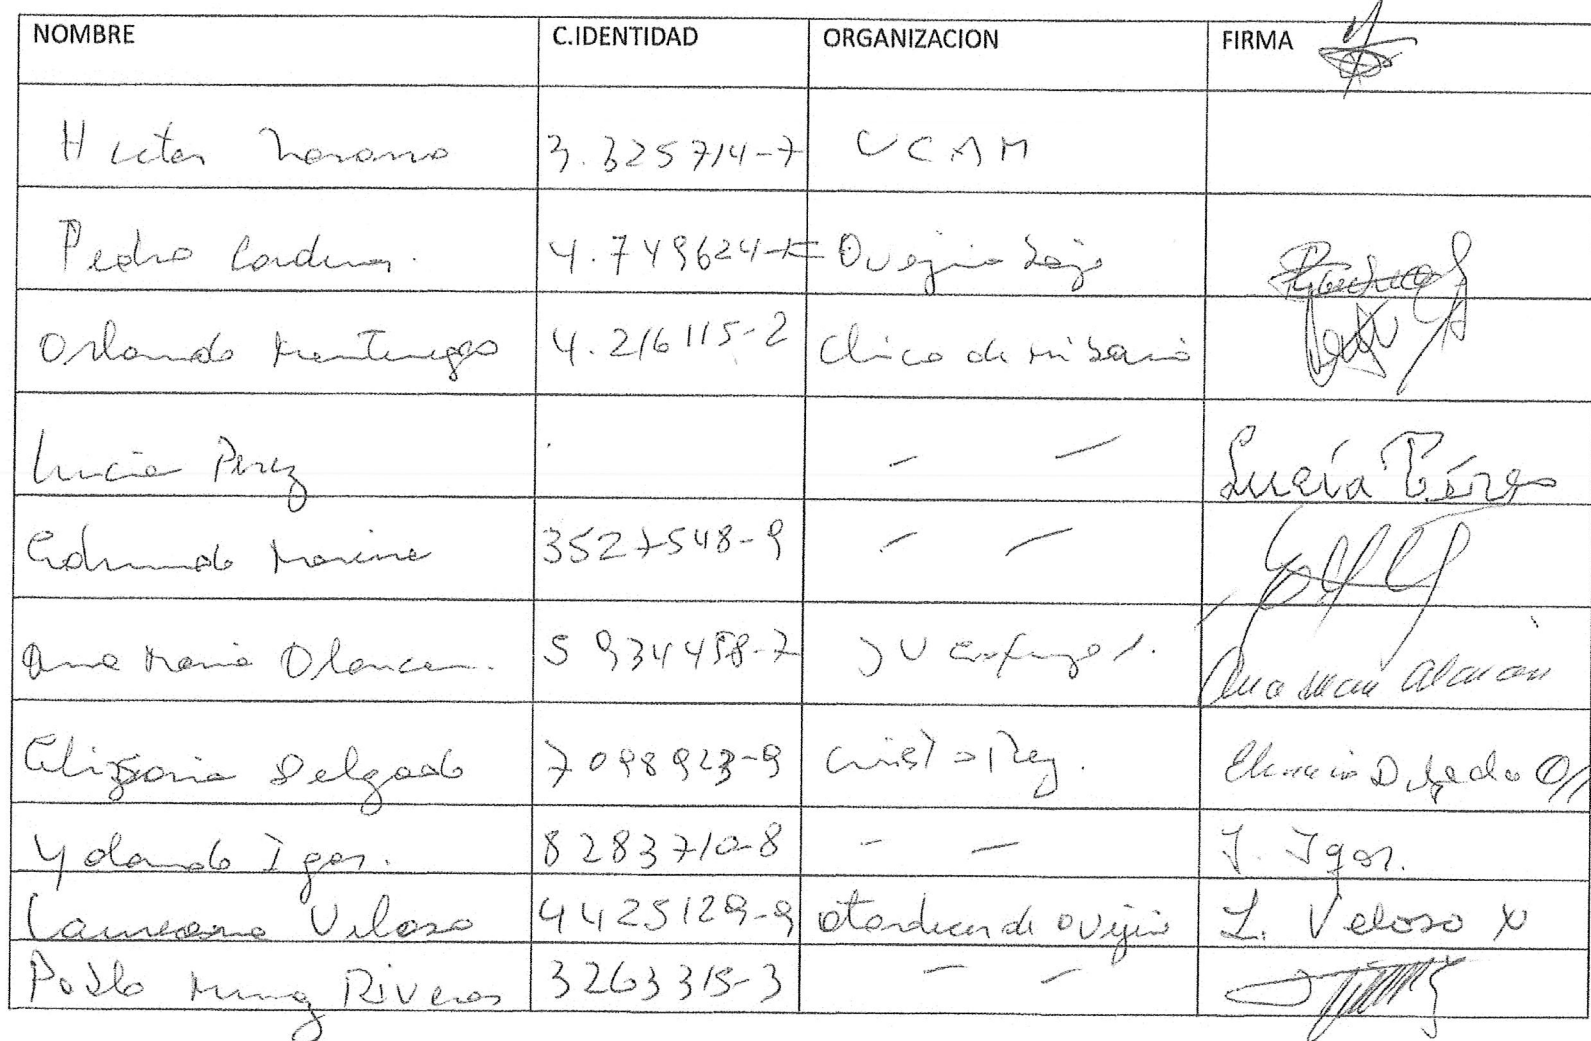 NOMBRE C.IDENTIDAD ORGANIZACION FIRMA
Hector 3.325714-7 UCAM
Pedro Cardenas. 4.749624-K Ovejeria
Orlando Montenegro 4.216115-2 Chico de mi barrio
Lucia Perez - - Lucía Pérez
Edmundo 3527548-9 - -
Ana Maria 5934458-7 JV Ana Maria Alarcón
Delgado 7098923-9 Cristo Rey. Delgado
Yolanda Igor. 8283710-8 - - Y. Igor.
Laureana Veloso 4425129-9 atardecer de Ovejeria L. Veloso
Pablo Muñoz Riveros 3263315-3 - -